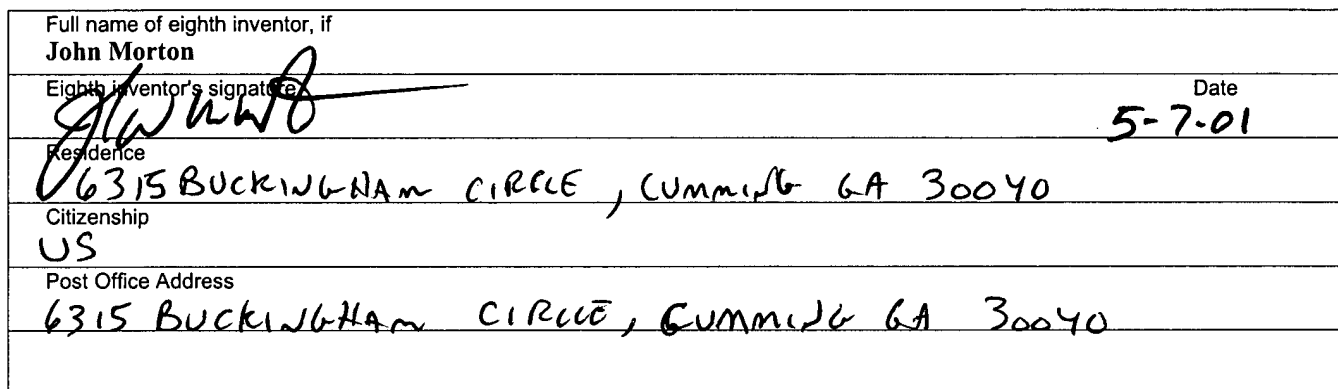 Full name of eighth inventor, if
John Morton
Eighth inventor's signature Date
5-7-01
Residence
6315 BUCKINGHAM CIRCLE, CUMMING GA 30040
Citizenship
US
Post Office Address
6315 BUCKINGHAM CIRCLE, CUMMING GA 30040